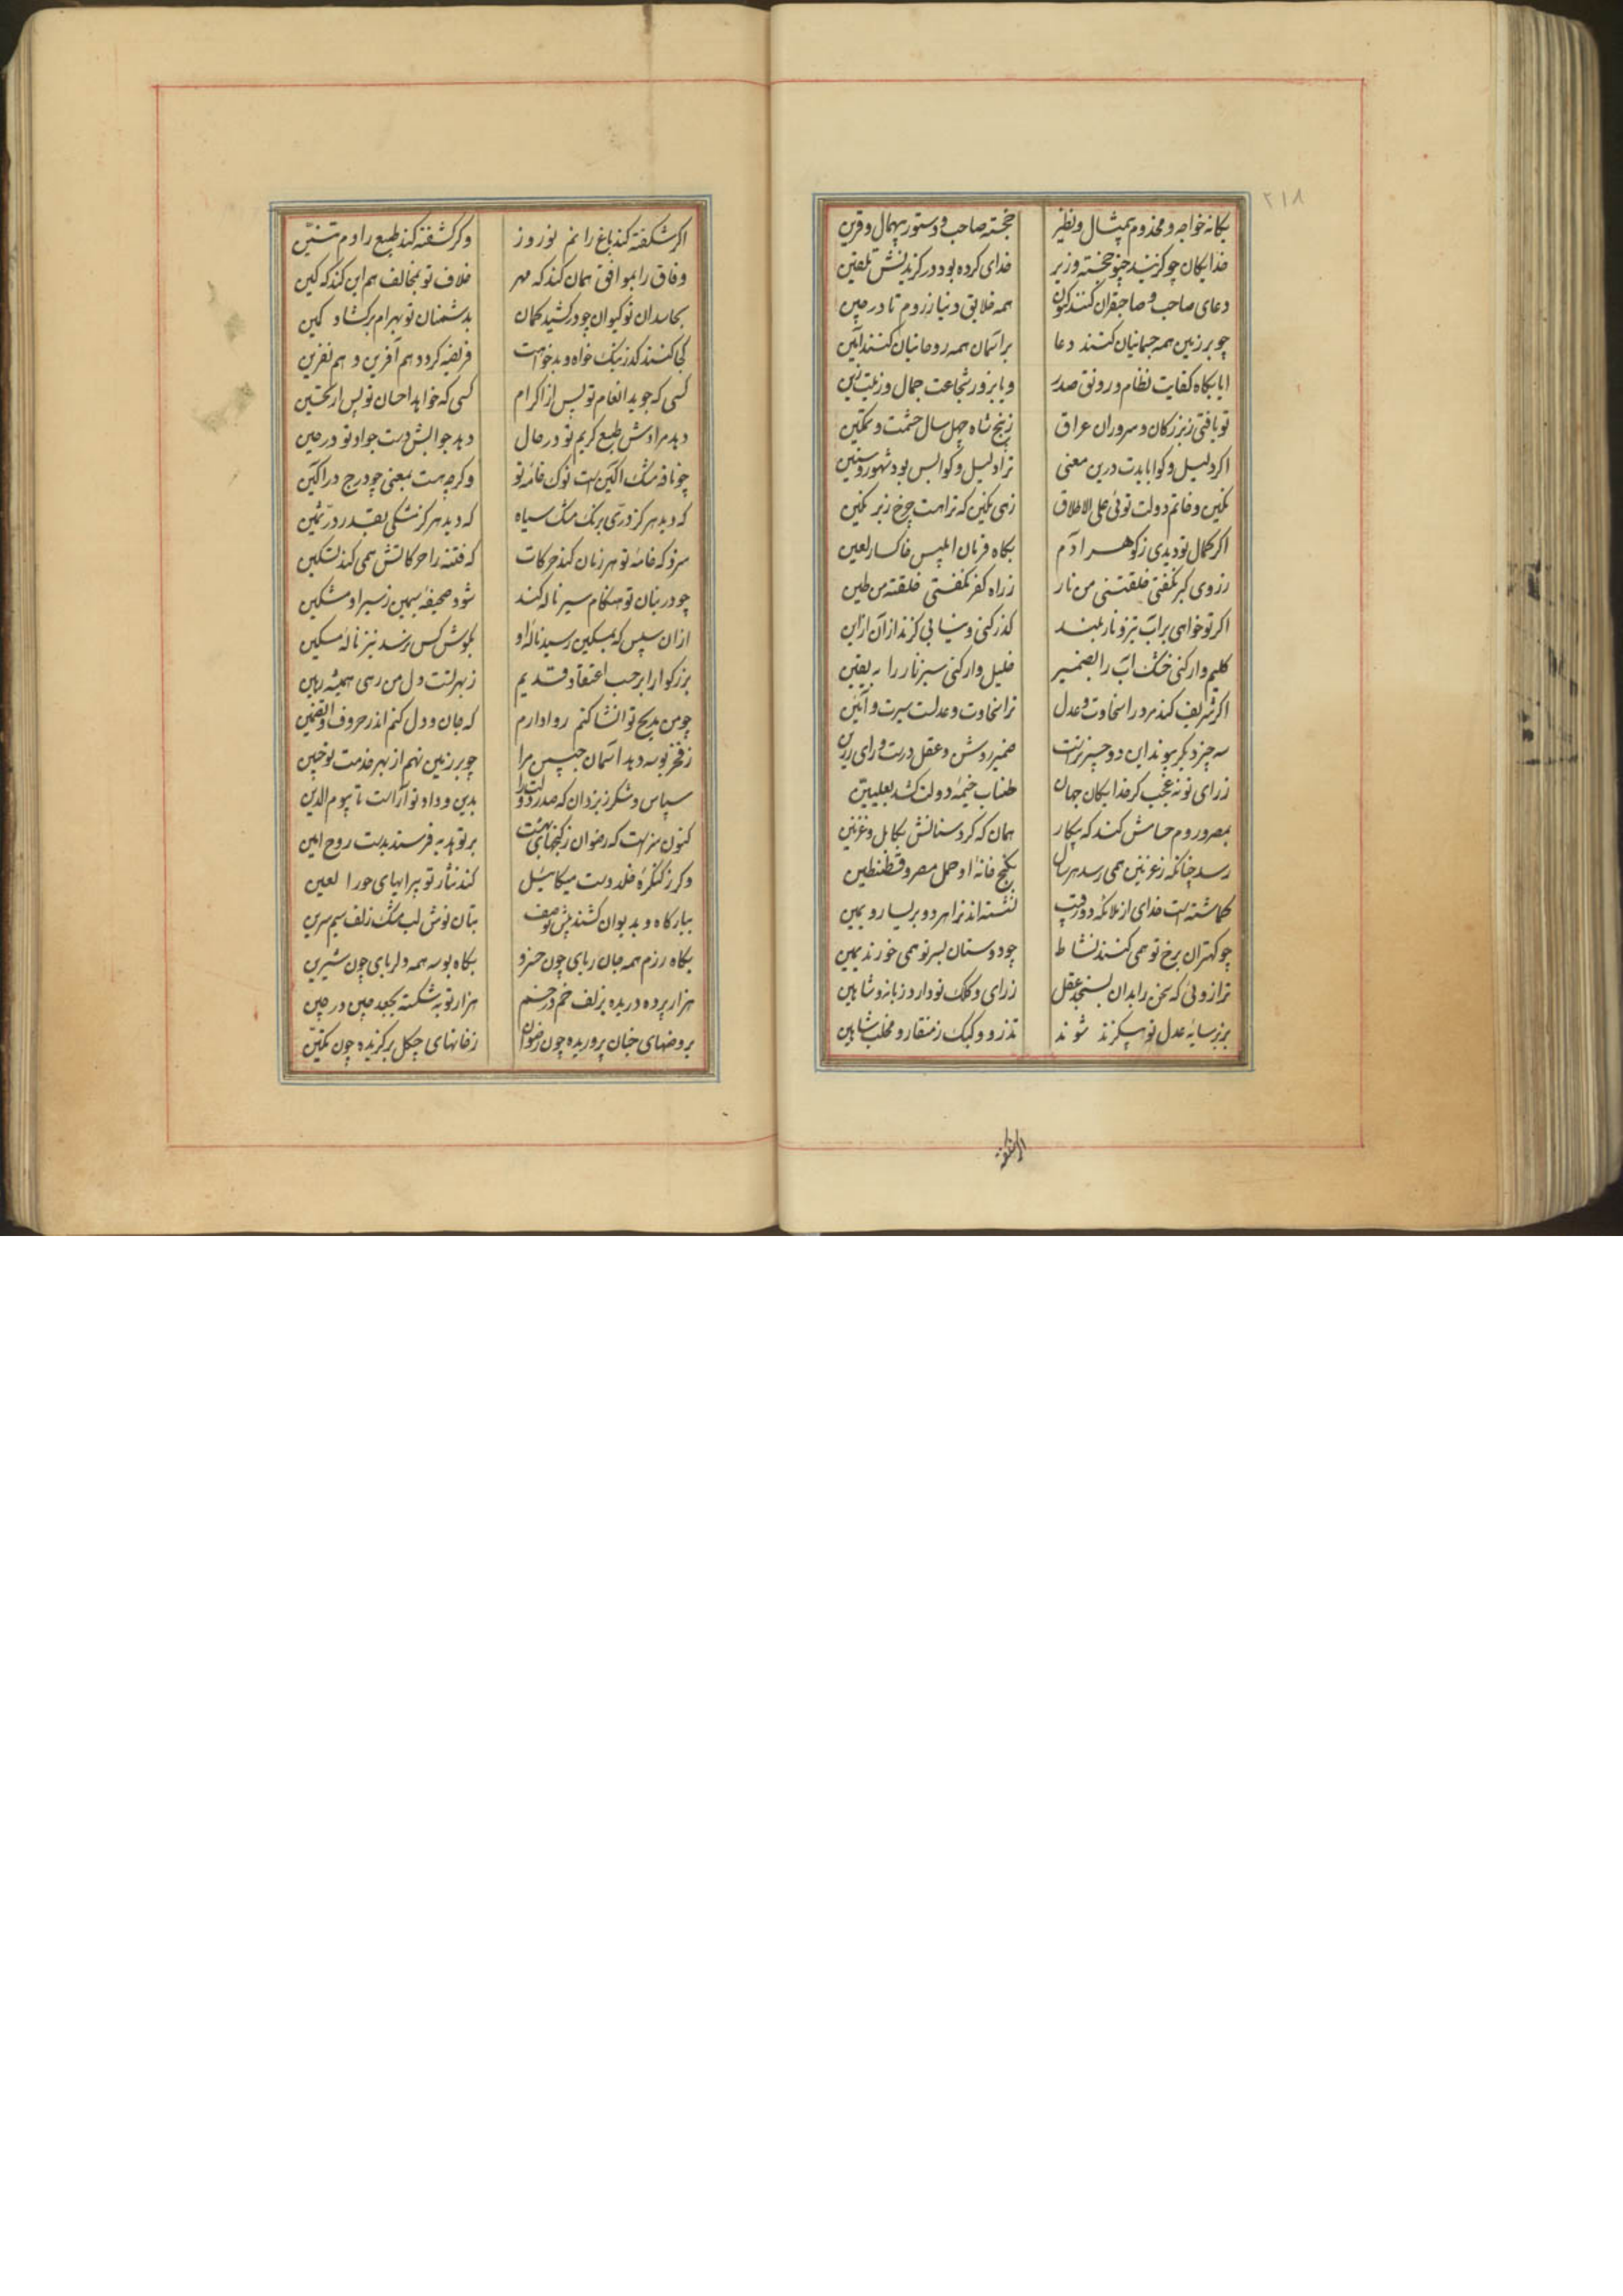 ۲۱۸
یکانه خواجه و مخدوم بیمثال و نظیر خجسته صاحب و دستور بیهمال و قرین
خدایکان چو کزیند چنو خجسته وزیر خدای کرده بود در کزیدنش تلقین
دعای صاحب و صاحبقران کنند کنون همه خلایق دنیا ز روم تا در چین
چو بر زمین همه جسمانیان کنند دعا بر آسمان همه روحانیان کنند آمین
ایا بکاه کفایت نظام و رونق صدر و یا بروز شجاعت جمال و زینت زین
تو یافتی ز بزرکان و سروران عراق ز پنج شاه چهل سال حشمت و تمکین
اکر دلیل و کوا بایدت درین معنی ترا دلیل و کوا بس بود شهور و سنین
نکین و خاتم دولت توئی علی الاطلاق زهی نکین که تراست چرخ زیر نکین
اکر کمال تو دیدی ز کوهر آدم بکاه فرمان ابلیس خاکسار لعین
ز روی کبر نکفتی خلقتنی من نار ز راه کفر نکفتی خلقته من طین
اکر تو خواهی بر آب تیز و نار بلند کذر کنی و نیابی کزند از آن از این
کلیم وار کنی خشک آب را بضمیر خلیل وار کنی سبز نار را به یقین
اکر شریف کند مرد را سخاوت و عدل ترا سخاوت و عدلست سیرت و آئین
سه چیز دیکر پیوند این دو چیز تراست ضمیر روشن و عقل درست و رای رزین
ز رای تو نه عجب کر خدایکان جهان طناب خیمه دولت کشد بعلیین
بمصر و روم حسامش کند که پیکار همان که کرد سنانش بکابل و غزنین
رسد چنانکه ز غزنین همی رسد هر سال بکنج خانه او حمل مصر و قسطنطین
کماشته است خدای از ملائکه دو رقیب نشسته اند ترا هر دو بر یسار و یمین
چو کهتران برخ تو همی کنند نشاط چو دوستان بسر تو همی خورند یمین
ترازوئی که سخن را بدان بسنجد عقل ز رای و کلک تو دارد زبانه و شاهین
بزیر سایه عدل تو بیکزند شوند تذرو و کبک ز منقار و مخلب شاهین
اکر شکفته
اکر شکفته کند باغ را نم نوروز و کر کشفته کند طبع را دم تنین
وفاق را بموافق همان کند که مهر خلاف تو بمخالف هم این کند که کین
بحاسدان تو کیوان چو درکشید کمان بدشمنان تو بهرام برکشاد کمین
کجا کنند کذر نیک خواه و بدخواهت فریفته کردد هم آفرین و هم نفرین
کسی که جوید انعام تو پس از اکرام کسی که خواهد احسان تو پس از تحسین
دهد مرادش طبع کریم تو در حال دهد جوابش دست جواد تو در حین
چو نافه مشک آکین است نوک خامه تو و کرچه هست بمعنی چو درج در آکین
که دید هرکز دری برنک مشک سیاه که دید هرکز مشکی بقدر در ثمین
سزد که خامه تو هر زمان کند حرکات که فتنه را حرکاتش همی کند تسکین
چو در بنان تو هنکام سیر ناله کند شود صحیفه سیمین ز سیر او مشکین
از آن سپس که بمسکین رسید ناله او بکوش کس نرسد نیز ناله مسکین
بزرکوارا بر حسب اعتقاد قدیم ز بهر تست دل من رهی همیشه رهین
چو من مدیح تو انشا کنم روا دارم که جان و دل کنم اندر حروف او تضمین
ز فخر بوسه دهد آسمان جبین مرا چو بر زمین نهم از بهر خدمت تو جبین
سپاس و شکر ز یزدان که صدر دولت را بدین و داد تو آراست تا بیوم الدین
کنون سزاست که رضوان ز کنجهای بهشت بر تو هدیه فرستد بدست روح امین
و کر ز کنکره خلد دست میکائیل کند نثار تو پیرایهای حور العین
ببارکاه و بدیوان کشند پیش تو صف بتان نوش لب مشک زلف سیم سرین
بکاه رزم همه جان ربای چون خسرو بکاه بوسه همه دلربای چون شیرین
هزار پرده دریده بزلف خم در خم هزار توبه شکسته بجعد چین در چین
بروضهای جنان پروریده چون رضوان ز خانهای چکل برکزیده چون تکین